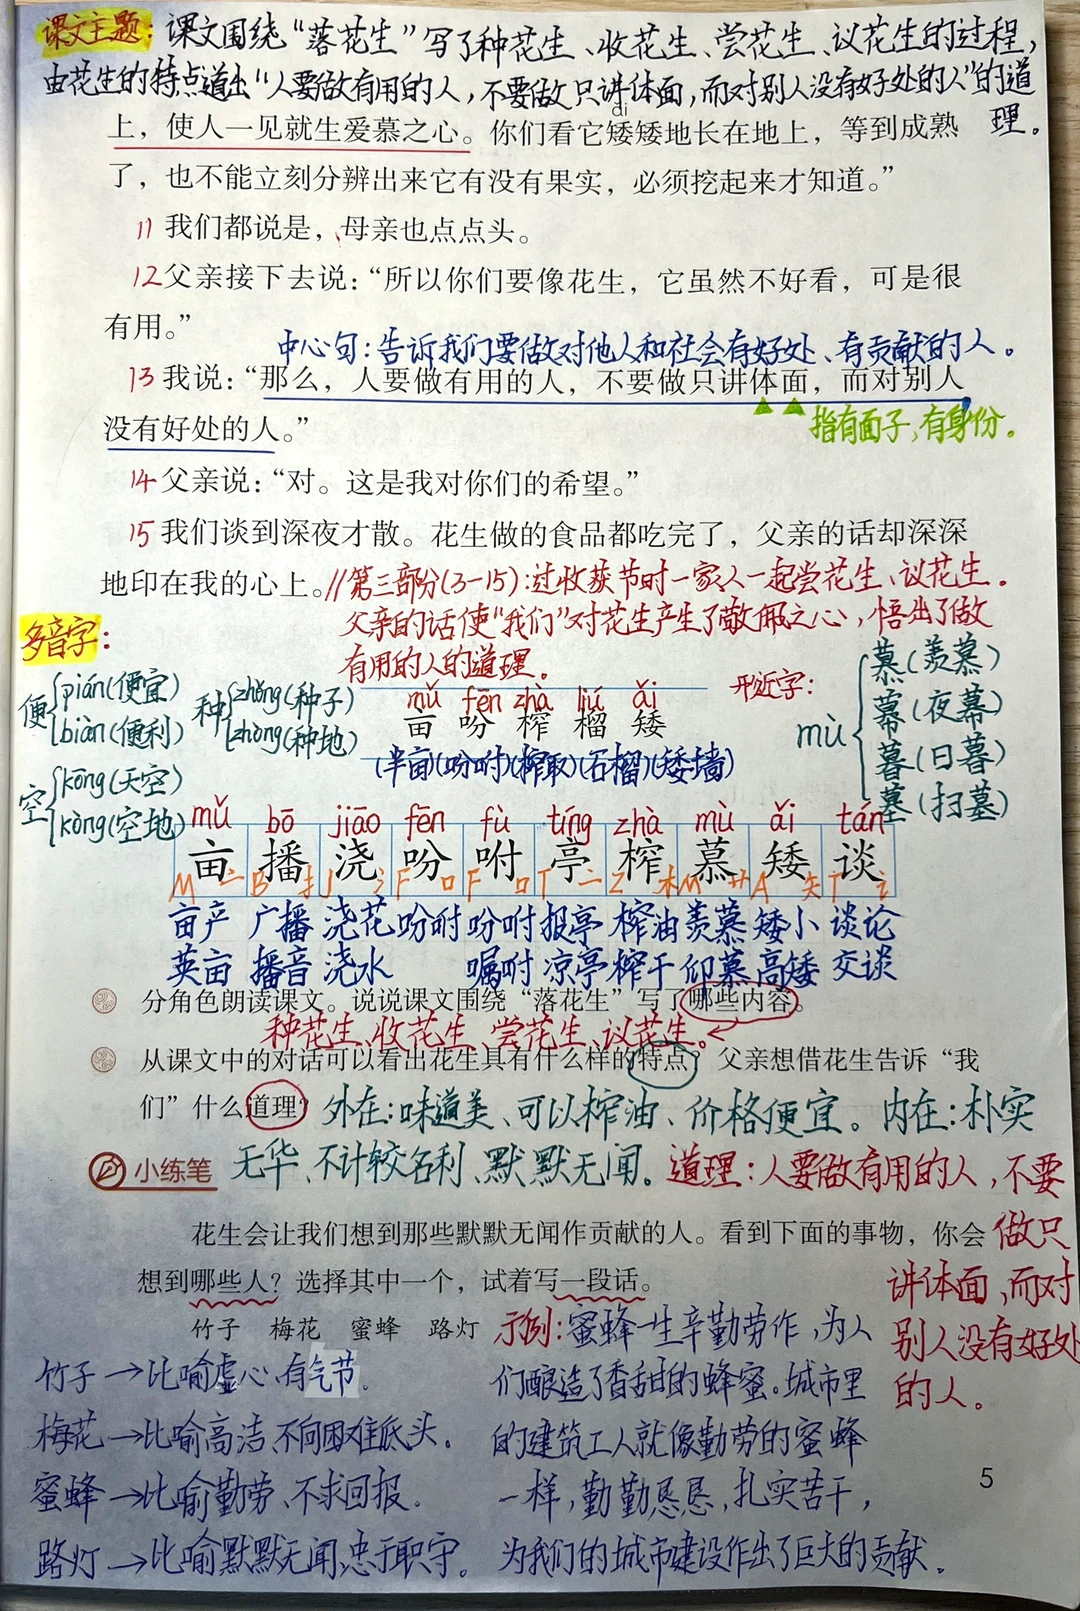 课文主题：课文围绕“落花生”写了种花生、收花生、尝花生、议花生的过程，
由花生的特点道出“人要做有用的人，不要做只讲体面，而对别人没有好处的人”的道
理。
di
上，使人一见就生爱慕之心。你们看它矮矮地长在地上，等到成熟
了，也不能立刻分辨出来它有没有果实，必须挖起来才知道。”
11 我们都说是，母亲也点点头。
12 父亲接下去说：“所以你们要像花生，它虽然不好看，可是很
有用。”
中心句：告诉我们要做对他人和社会有好处、有贡献的人。
13 我说：“那么，人要做有用的人，不要做只讲体面，而对别人
没有好处的人。”
指有面子，有身份。
14 父亲说：“对。这是我对你们的希望。”
15 我们谈到深夜才散。花生做的食品都吃完了，父亲的话却深深
地印在我的心上。//第三部分(3-15)：过收获节时一家人一起尝花生、议花生。
父亲的话使“我们”对花生产生了敬佩之心，悟出了做
有用的人的道理。
多音字：
便 pián(便宜)
biàn(便利)
种 zhǒng(种子)
zhòng(种地)
空 kōng(天空)
kòng(空地)
mǔ fēn zhà liú ǎi
亩 吩 榨 榴 矮
(半亩)(吩咐)(榨取)(石榴)(矮墙)
形近字：
mù 慕(羡慕)
幕(夜幕)
暮(日暮)
墓(扫墓)
mǔ bō jiāo fēn fù tíng zhà mù ǎi tán
亩 播 浇 吩 咐 亭 榨 慕 矮 谈
M 亠 B 扌 J 氵 F 口 F 口 T 亠 Z 木 M 艹 A 矢 T 讠
亩产 广播 浇花 吩咐 吩咐 报亭 榨油 羡慕 矮小 谈论
英亩 播音 浇水 嘱咐 凉亭 榨干 仰慕 高矮 交谈
分角色朗读课文。说说课文围绕“落花生”写了哪些内容。
种花生、收花生、尝花生、议花生。
从课文中的对话可以看出花生具有什么样的特点？父亲想借花生告诉“我
们”什么道理？ 外在：味道美、可以榨油、价格便宜。内在：朴实
无华、不计较名利、默默无闻。 道理：人要做有用的人，不要
做只
讲体面，而对
别人没有好处
的人。
小练笔
花生会让我们想到那些默默无闻作贡献的人。看到下面的事物，你会
想到哪些人？选择其中一个，试着写一段话。
竹子 梅花 蜜蜂 路灯
竹子→比喻虚心、有气节。
梅花→比喻高洁、不向困难低头。
蜜蜂→比喻勤劳、不求回报。
路灯→比喻默默无闻、忠于职守。
示例：蜜蜂一生辛勤劳作，为人
们酿造了香甜的蜂蜜。城市里
的建筑工人就像勤劳的蜜蜂
一样，勤勤恳恳，扎实苦干，
为我们的城市建设作出了巨大的贡献。
5